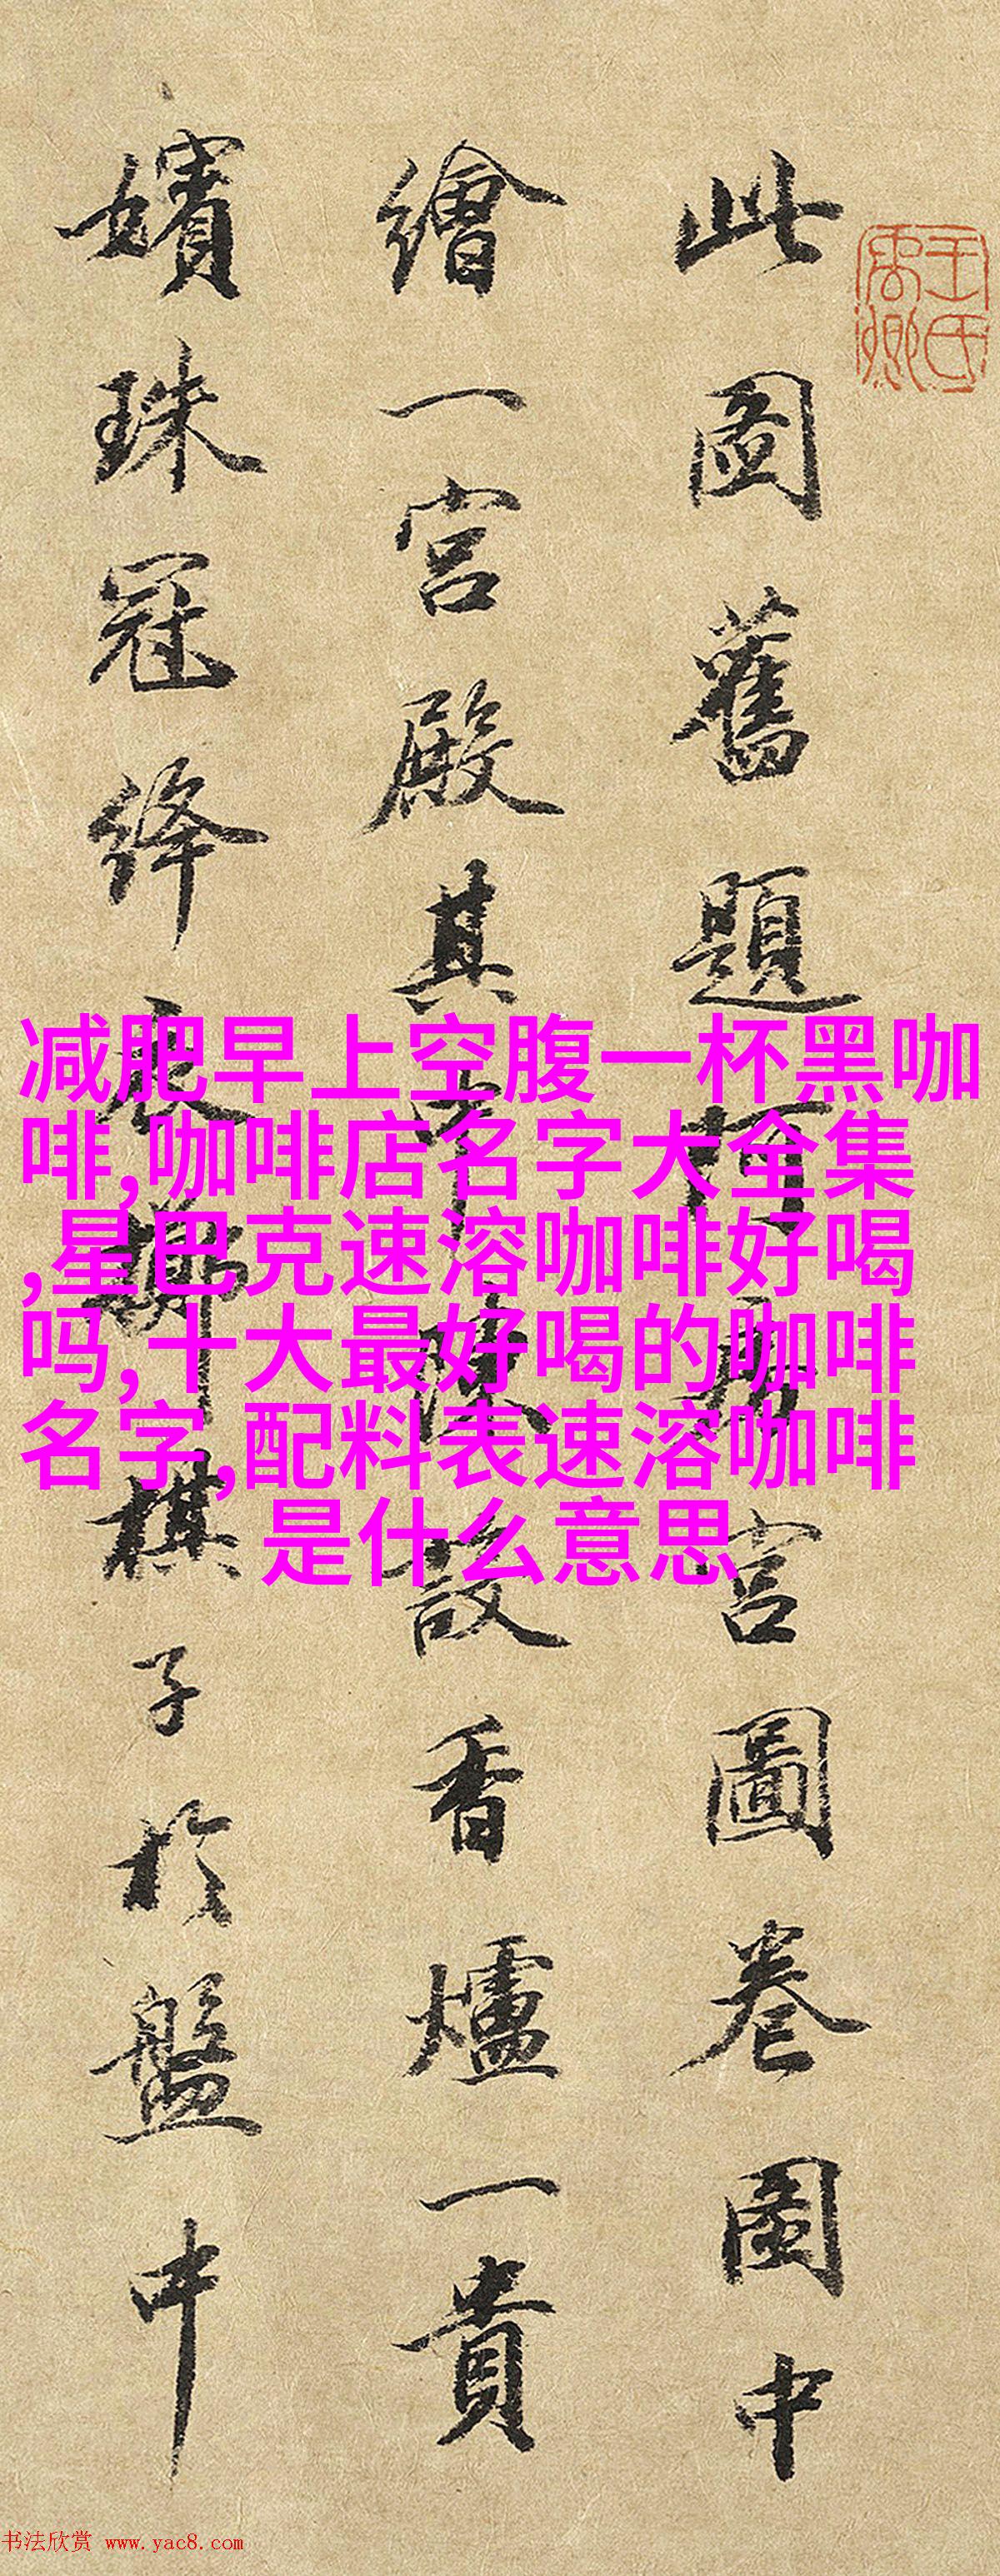 此圖舊題阿房宮圖卷圖中
繪一宮殿其中陳設香爐一貴
嬪珠冠絳衣擲棋子於盤中
王氏禹卿
减肥早上空腹一杯黑咖
啡,咖啡店名字大全集
,星巴克速溶咖啡好喝
吗,十大最好喝的咖啡
名字,配料表速溶咖啡
是什么意思
书法欣赏 www.yac8.com